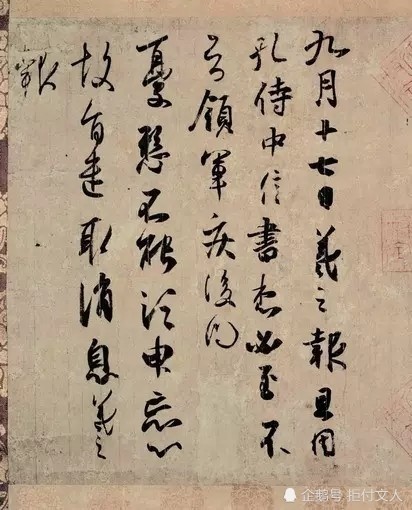 九月十七日羲之報且因
孔侍中信書想必至不
知領軍疾後問
憂懸不能須臾忘心
故旨遣取消息羲之
報
企鹅号 拒付文人